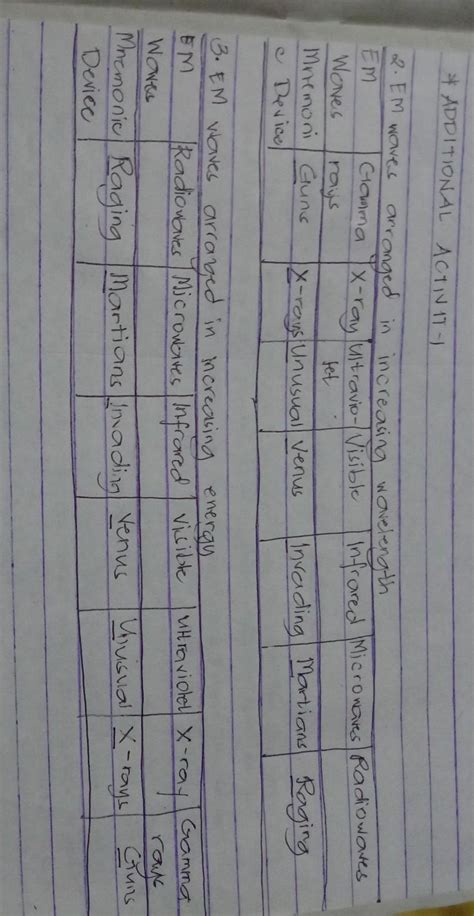 * ADDITIONAL ACTIVITY-1
2. EM waves arranged in increasing wavelength
EM Gamma X-ray Ultravio- Visible Infrared Microwaves Radiowaves
Waves rays let
Mnemoni Guns X-rays Unusual Venus Invading Martians Raging
c Device
3. EM waves arranged in increasing energy
EM Radiowaves Microwaves Infrared Visible Ultraviolet X-ray Gamma
Waves rays
Mnemonic Raging Martians Invading Venus Unusual X-rays Guns
Device